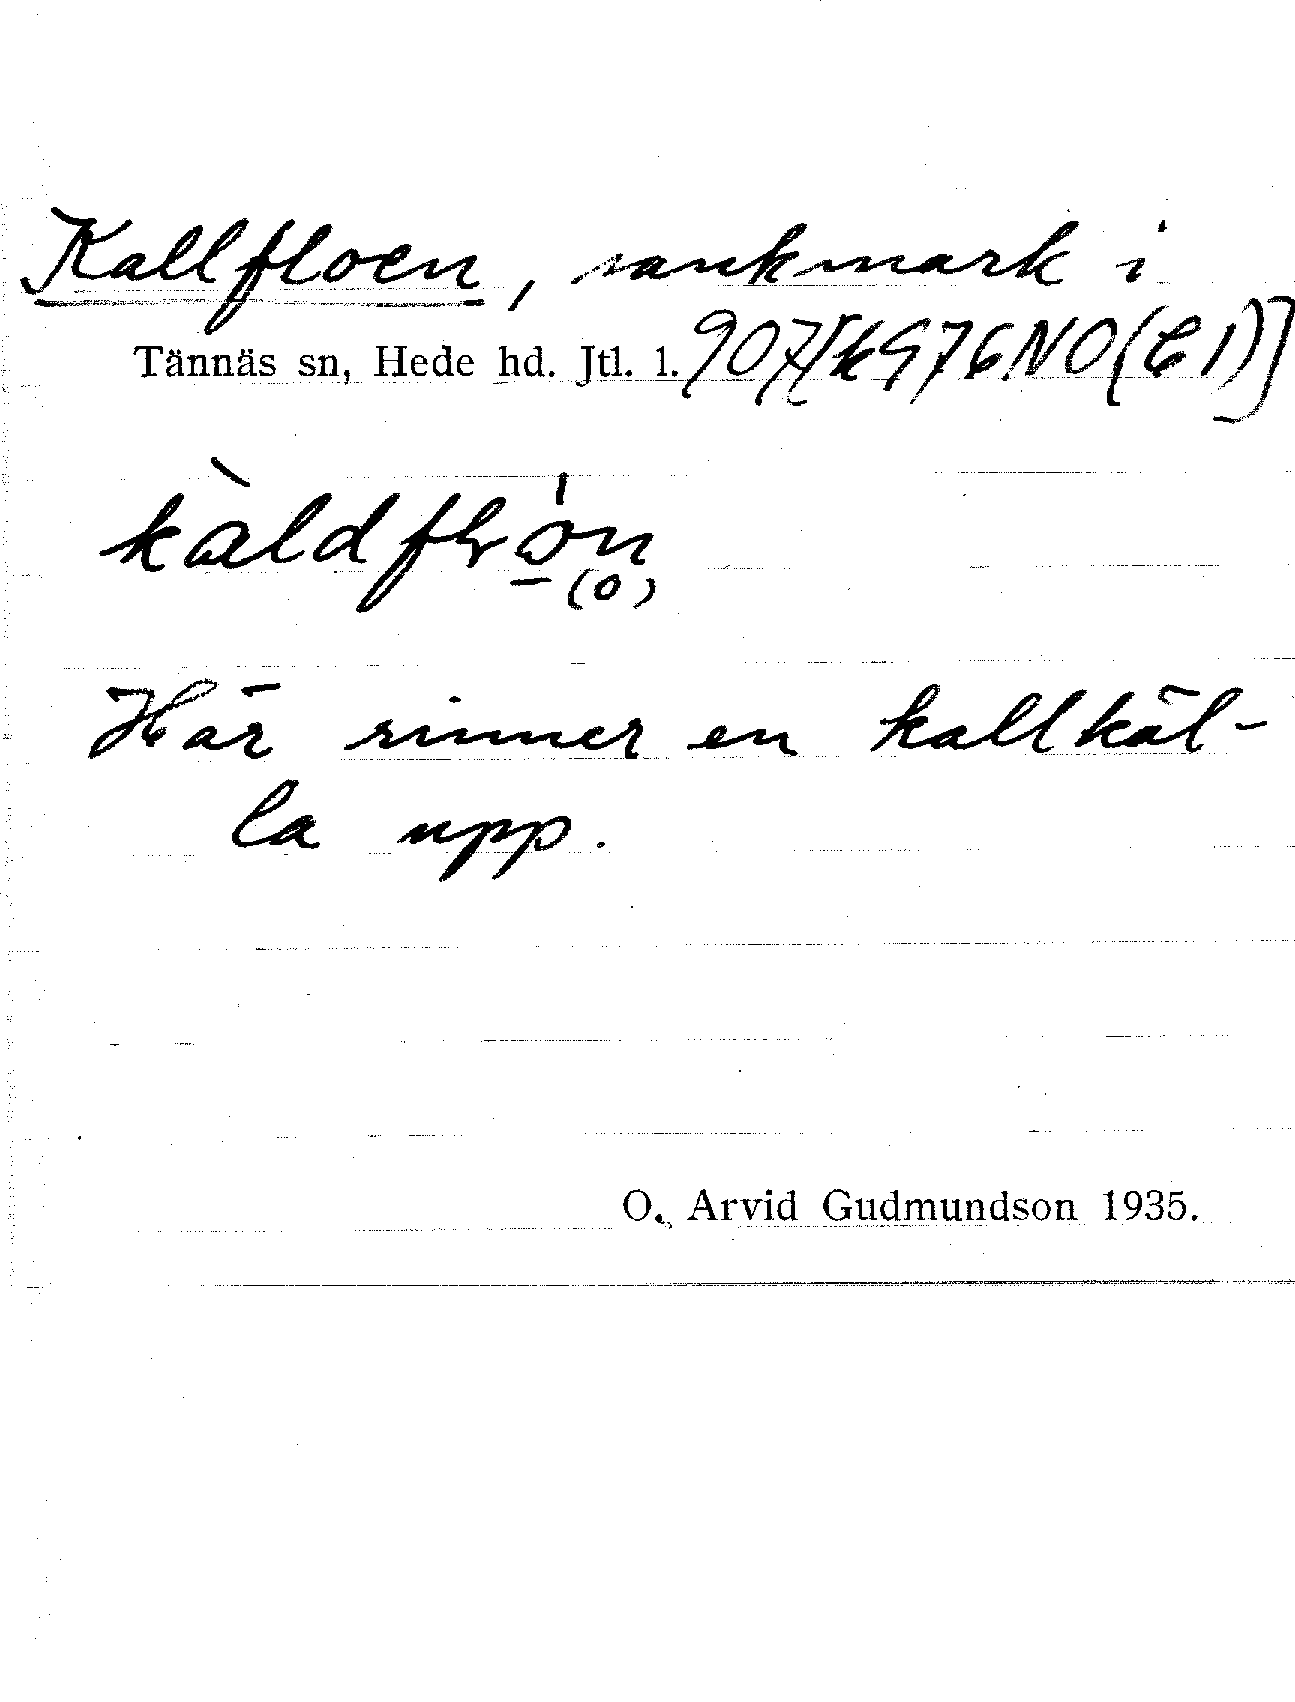 Kallfloen, sankmark i
Tännäs sn, Hede hd. Jtl. l. 907[kG76NO(C1)]
Här rinner en kallkäl-
la upp.
O. Arvid Gudmundson 1935.